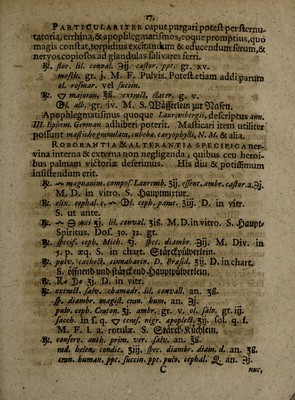 17.
PARTICULARITER caput purgari potest per sternu-
tatoria, errhina, & apophlegmatismos, eoque promptius, quo
magis constat, torpidius excitandum & educendum serum, &
nervos copiosos ad glandulas salivares ferri.
℞. flor. lil. convall. ℈ij. castor. ppt. gr. xv.
moschi. gr. j. M. F. Pulvis. Potest etiam addi parum
ol. rosmar. vel succin.
℞. majoran. ʒß. extract. ellaer. g. v.
Ol. alb. gr. iv. M. S. Pülferlein zur Nasen.
Apophlegmatismus quoque Laurembergii, descriptus ann.
III. Ephem. German. adhiberi poterit. Masticari item utiliter
possunt mastiche granulata, cubeba, caryophylli, N. M. & alia.
ROBORANTIA & ALTERANTIA SPECIFICA ner-
vina interna & externa non negligenda; quibus ceu heroi-
bus palmam victoriæ deferimus. His diu & potissimum
insistendum erit.
℞. magnanim. compos. Lauremb. ʒij. essent. ambr. castor. a. ʒj.
M. D. in vitro. S. Hauptmixtur.
℞. elix. cephal. c. Ol. ceph. panut. ʒiij. D. in vitr.
S. ut ante.
℞. lil. convall. ʒiß. M. D. in vitro. S. Haupt-
Spiritus. Dos. 30. 32. gt.
℞. specif. ceph. Mich. ʒj. spec. diambr. ℈ij. M. Div. in
5. p. xq. S. in chart. Stärckpülverlein.
℞. pulv. cachect. cinnabarin. D. Præsid. ʒij. D. in chart.
S. öffnend und stärckend Hauptpülverlein.
℞. ʒj. D. in vitr.
℞. extract. salv. chamædr. lil. convall. an. ʒß.
sp. diambr. magist. cran. hum. an. ʒj.
pulv. ceph. Craton. ʒj. ambr. gr. v. ol. salv. gr. iij.
sacch. in s. q. cerus. nigr. apoplect. ʒij. sol. q. s.
M. F. l. a. rotulæ. S. Stärck-Küchlein.
℞. conserv. anth. prim. ver. salv. an. ʒß.
rad. helen. condit. ʒiij. spec. diambr. diam. d. an. ʒß.
cran. human. ppt. succin. ppt. pulv. cephal. an. ℈j.
C nuc,